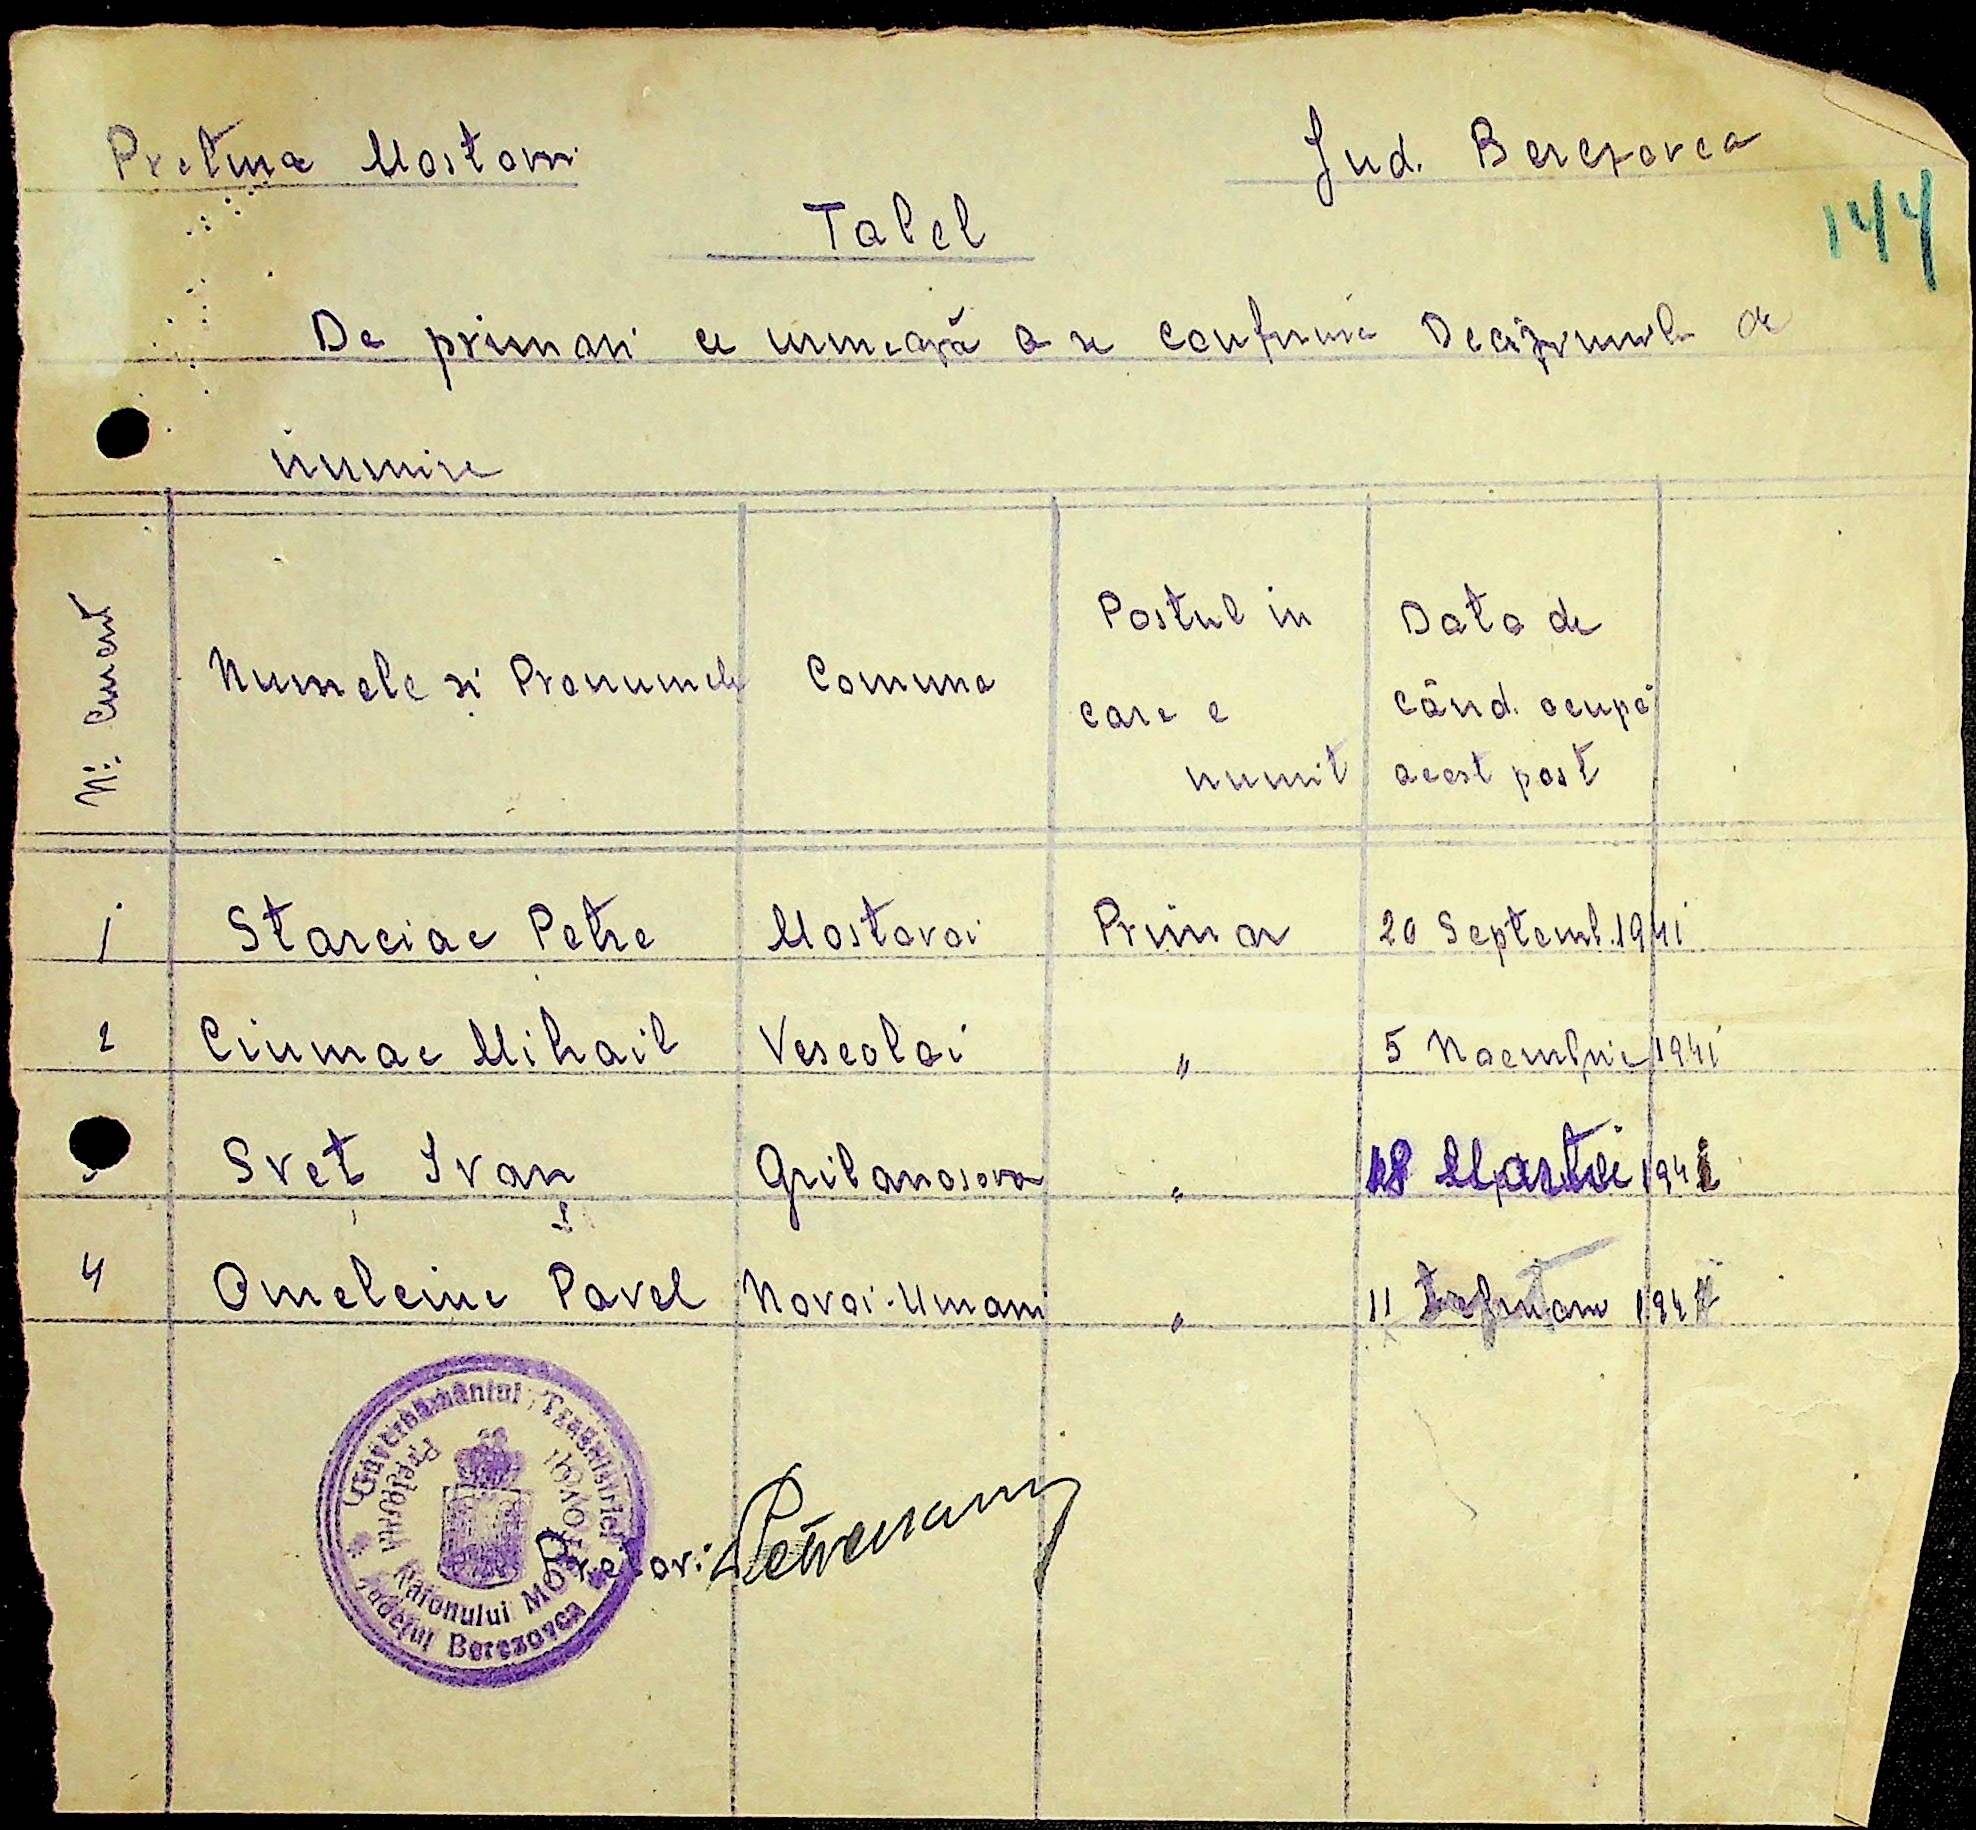 Pretura Mostovoi
Jud. Berezovca
144
Tabel
De primari ce urmează a se confirma Deciziunile de
numire
Nr. Curent
Numele si Pronumele
Comuna
Postul in
care e
numit
Data de
când ocupă
acest post
1 Starciac Petre Mostovoi Primar 20 Septemb. 1941
2 Ciumac Mihail Veseoloi " 5 Noembrie 1941
Sveț Ivan Gribanosova " 18 194
4 Omelciuc Pavel Novoi-Umani " 11 194
Guvernământul Transnistriei
Pretorul Raionului MOSTOVOI
Județul Berezovca
Pretor: